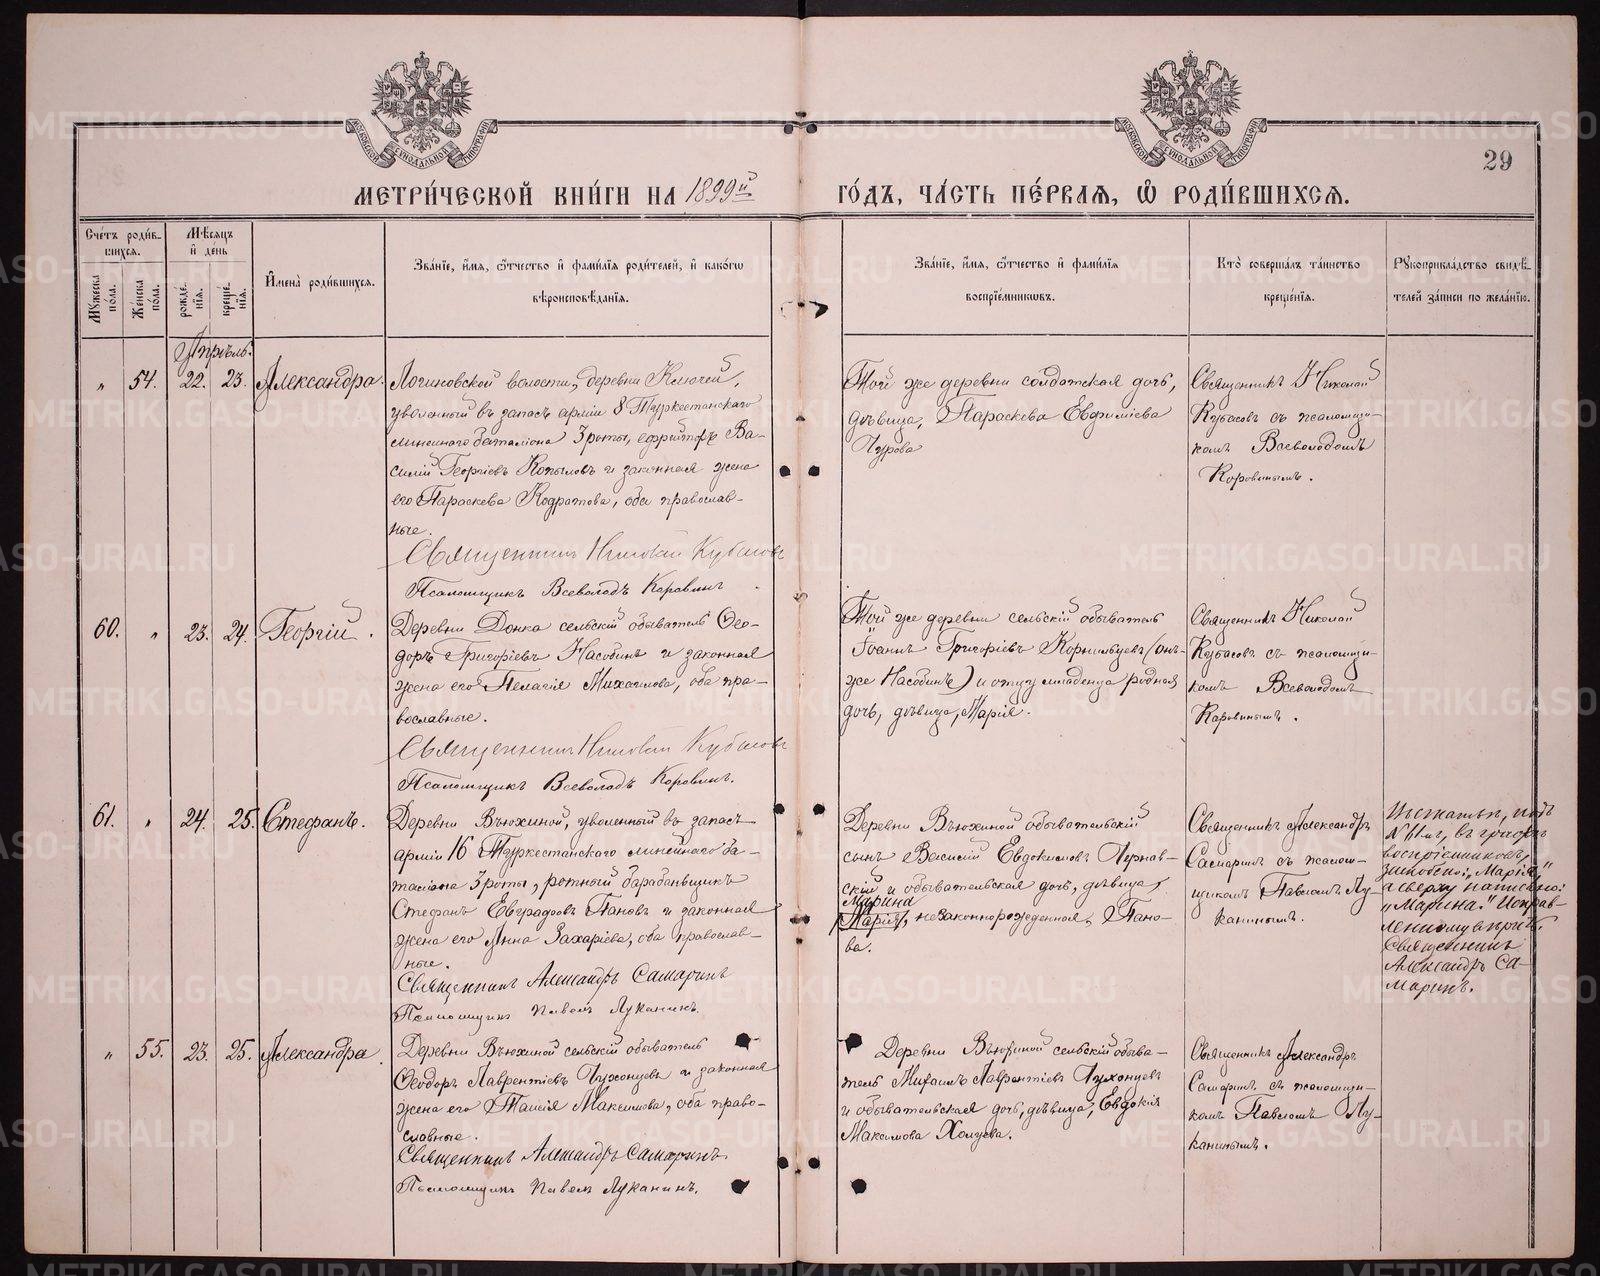 МОСКОВСКОЙ СѴНОДАЛЬНОЙ ТИПОГРАФІИ
МОСКОВСКОЙ СѴНОДАЛЬНОЙ ТИПОГРАФІИ
29
МЕТРИ́ЧЕСКОЙ КНИ́ГИ НА 1899й
ГО́ДЪ, ЧА́СТЬ ПЕ́РВАѦ, Ѡ҆ РОДИ́ВШИХСѦ.
Сче́тъ роди́в-
шихсѧ.
Мꙋжеска по́ла.
Же́нска по́ла.
М́ѣсѧцъ
и҆ де́нь
рожде́-
нїѧ.
креще́-
нїѧ.
И҆мена̀ роди́вшихсѧ.
Зва́нїе, и҆́мѧ, ѻ҆́тчество и҆ фами́лїѧ роди́телей, и҆ како́гѡ
вѣроисповѣ́данїѧ.
Зва́нїе, и҆́мѧ, ѻ҆́тчество и҆ фами́лїѧ
воспрїе́мниковъ.
Кто̀ соверша́лъ та́инство
креще́нїѧ.
Рꙋкоприкла́дство свидѣ́-
телей за́писи по жела́нїю.
Апрѣль.
„ 54. 22. 23. Александра.
Логиновской волости, деревни Ключей,
уволенный въ запасъ арміи 8 Туркестанскаго
линейнаго баталіона 3 роты, ефрейторъ Ва-
силій Георгіевъ Копыловъ и законная жена
его Параскева Кодратова, оба православ-
ные.
Священникъ Николай Кубасовъ
Псаломщикъ Всеволодъ Коровинъ
Той же деревни солдатская дочь,
дѣвица, Параскева Евфиміева
Чурова
Священникъ Николай
Кубасовъ съ псаломщи-
комъ Всеволодомъ
Коровинымъ.
60. „ 23. 24. Георгій.
Деревни Донка сельскій обыватель Ѳео-
доръ Григоріевъ Насобинъ и законная
жена его Пелагія Михаилова, оба пра-
вославные.
Священникъ Николай Кубасовъ
Псаломщикъ Всеволодъ Коровинъ.
Той же деревни сельскій обыватель
Іоаннъ Григоріевъ Корнильцевъ (онъ-
же Насобинъ) и отцу младенца родная
дочь, дѣвица, Марія.
Священникъ Николай
Кубасовъ съ псаломщи-
комъ Всеволодомъ
Коровинымъ.
61. „ 24. 25. Стефанъ.
Деревни Вьюхиной, уволенный въ запасъ
арміи 16 Туркестанскаго линейнаго ба-
таліона 3 роты, ротный барабанщикъ
Стефанъ Евградовъ Пановъ и законная
жена его Анна Захаріева, оба православ-
ные.
Священникъ Александръ Самаринъ
Псаломщикъ Павелъ Луканинъ.
Деревни Вьюхиной обывательскій
сынъ Василій Евдокимовъ Чернав-
скій и обывательская дочь, дѣвица,
Марина
Марія, незаконнорожденная, Пано-
ва.
Священникъ Александръ
Самаринъ съ псалом-
щикомъ Павломъ Лу-
канинымъ.
въ графѣ
воспріемниковъ,
„Марія,“
а сверху написано:
„Марина.“ Исправ-
ленному вѣрить.
Священникъ
Александръ Са-
маринъ.
„ 55. 23. 25. Александра.
Деревни Вьюхиной сельскій обыватель
Ѳеодоръ Лаврентіевъ Чухонцевъ и законная
жена его Таисія Максимова, оба право-
славные.
Священникъ Александръ Самаринъ.
Псаломщикъ Павелъ Луканинъ.
Деревни Вьюхиной сельскій обыва-
тель Михаилъ Лаврентіевъ Чухонцевъ
и обывательская дочь, дѣвица, Евдокія
Максимова Холуева.
Священникъ Александръ
Самаринъ съ псаломщи-
комъ Павломъ Лу-
канинымъ.
METRIKI.GASO-URAL.RU